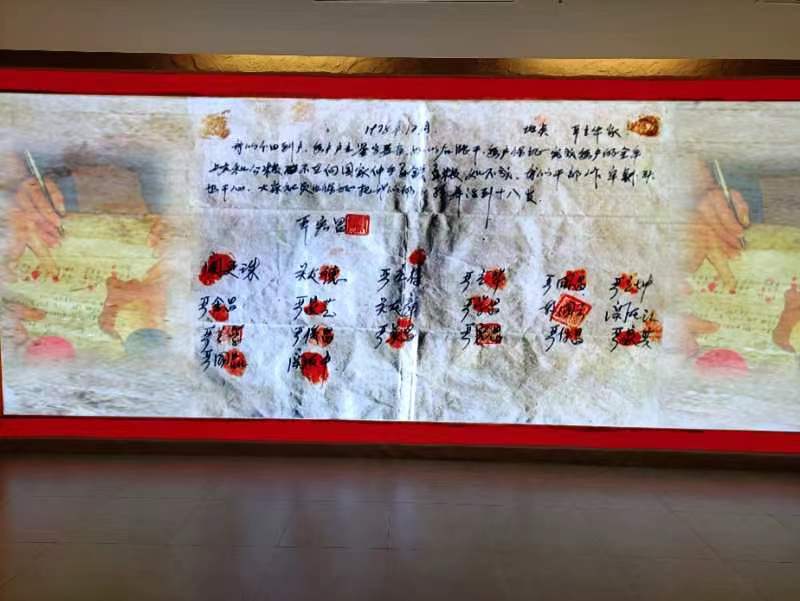 1978年12月 地点 严立华家
我们分田到户，每户户主签字盖章，如以后能干，每户保证完成每户的全年
上交和公粮。不在向国家伸手要钱要粮，如不成，我们干部作牢刹头
也干心，大家社员也保证把我们的小孩养活到十八岁。
严宏昌
关廷珠 关友德 严立付 严立华 严国昌 严立坤
严金昌 严家芝 关友章 严学昌 韩国云 关友江
严立学 严俊昌 严美昌 严宏昌 严付昌 严家其
严国品 关友申